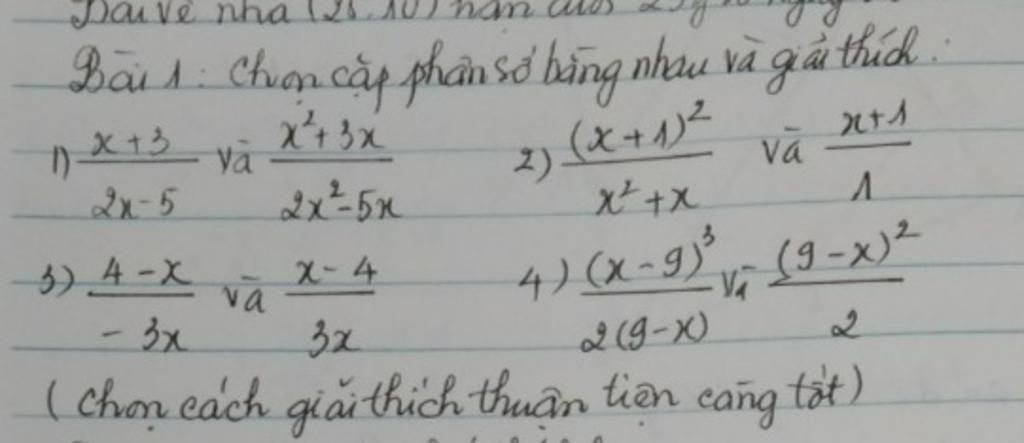 Bài về nhà (25.10)
Bài 1: Chọn cặp phân số bằng nhau và giải thích:
1) x+3 / 2x-5 và x²+3x / 2x²-5x 2) (x+1)² / x²+x và x+1 / 1
3) 4-x / -3x và x-4 / 3x 4) (x-9)³ / 2(9-x) và (9-x)² / 2
(chọn cách giải thích thuận tiện càng tốt)